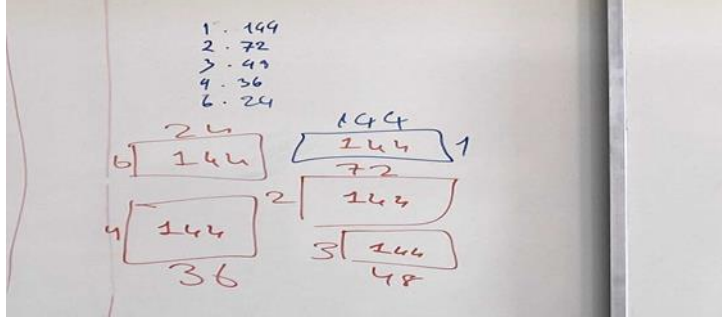 1 . 144
2 . 72
3 . 48
4 . 36
6 . 24
24
6 144
144
144 1
72
2 144
4 144
36
3 144
48